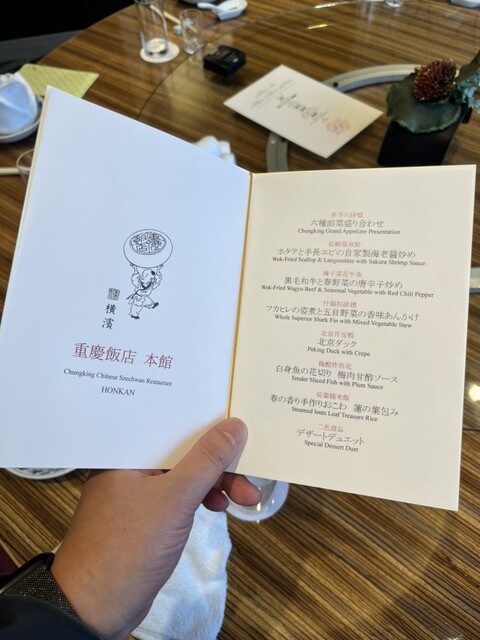 横濱
重慶飯店 本館
Chungking Chinese Szechwan Restaurant
HONKAN
六種前菜盛り合わせ
Chungking Grand Appetizer Presentation
ホタテと手長エビの自家製海老醤炒め
Wok-Fried Scallop & Langoustine with Sakura Shrimp Sauce
黒毛和牛と春野菜の唐辛子炒め
Wok-Fried Wagyu Beef & Seasonal Vegetable with Red Chili Pepper
フカヒレの姿煮と五目野菜の香味あんかけ
Whole Superior Shark Fin with Mixed Vegetable Stew
北京ダック
Peking Duck with Crepe
白身魚の花切り 梅肉甘酢ソース
Tender Sliced Fish with Plum Sauce
春の香り手作りおこわ 蓮の葉包み
Steamed louts Leaf Treasure Rice
二色甜品
デザートデュエット
Special Dessert Duet